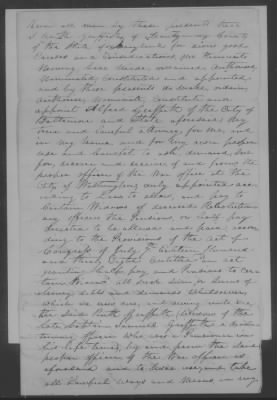 Know all men by these presents that
I Ruth Griffith of Montgomery County
of the State of Maryland for divers good
Causes and Considerations me thereunto
Moving have made ordained authorised
Nominated Constituted and appointed
and by these presents do make, ordain,
authorise, Nominate, Constitute and
appoint Alfred Griffith of the City of
Baltimore and State aforesaid my
true and lawful attorney, for me, and
in my name, and for my own proper
use and benefit to ask, demand, sue
for, recover and receive of and from the
proper officer of the War office at the
City of Washington, duly appointed acc
ording to Law to allow, and pay to
Certain Widows of deceased Revolutionary
officers the Pensions, or half pay
directed to be allowed and paid accor
ding to the Provisions of the act of
Congress of July Eighteen Hundred
and thirty Eight Entitled "An act
granting half pay and Pensions to cer
tain Widows" all such sum, or sums of
Money, debts and demands whatsoever
which we now are, and owing unto me
the said Ruth Griffith (Widow of the
late Captain Samuel Griffith a Revolu
tionary officer who was a Pensioner in
his life time,) by and from the said
proper officer of the War office as
aforesaid and to have use and take
all lawful ways and means, in my